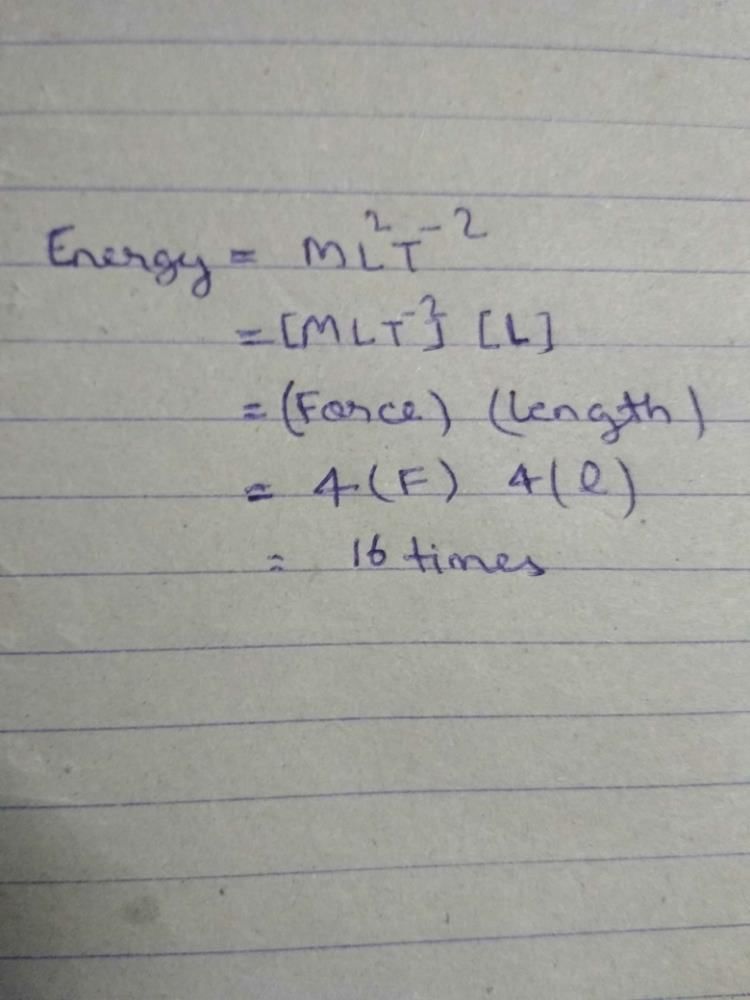 Energy = ML²T⁻²
= [MLT⁻²] [L]
= (Force) (length)
= 4(F) 4(l)
= 16 times